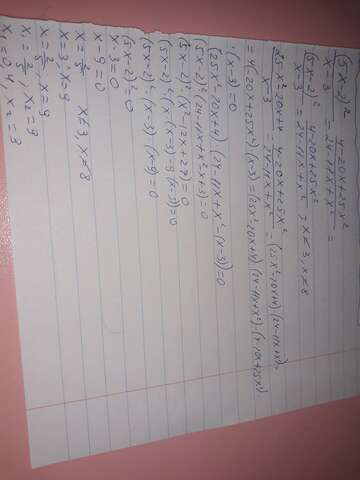 (5x-2)² / x-3 = 4-20x+25x² / 24-11x+x² =
(5x-2)² / x-3 = 4-20x+25x² / 24-11x+x², x≠3, x≠8
25x²-20x+4 / x-3 = 4-20x+25x² / 24-11x+x² = (25x²-20x+4)(24-11x+x²)=
=4-20x+25x²)(x-3)=(25x²-20x+4)(24-11x+x²)-(4-20x+25x²)
·(x-3)=0
(25x²-20x+4)(24-11x+x²-(x-3))=0
(5x-2)²(24-11x+x²-x+3)=0
(5x-2)²(x²-12x+27)=0
(5x-2)²(x(x-3)-9(x-3))=0
(5x-2)²(x-3)·(x-9)=0
(5x-2)²=0
x-3=0
x-9=0
x=2/5 x≠3, x≠8
x=3, x=9
x=2/5, x=9
x₁=2/5, x₂=9
x₁=0,4, x₂=9